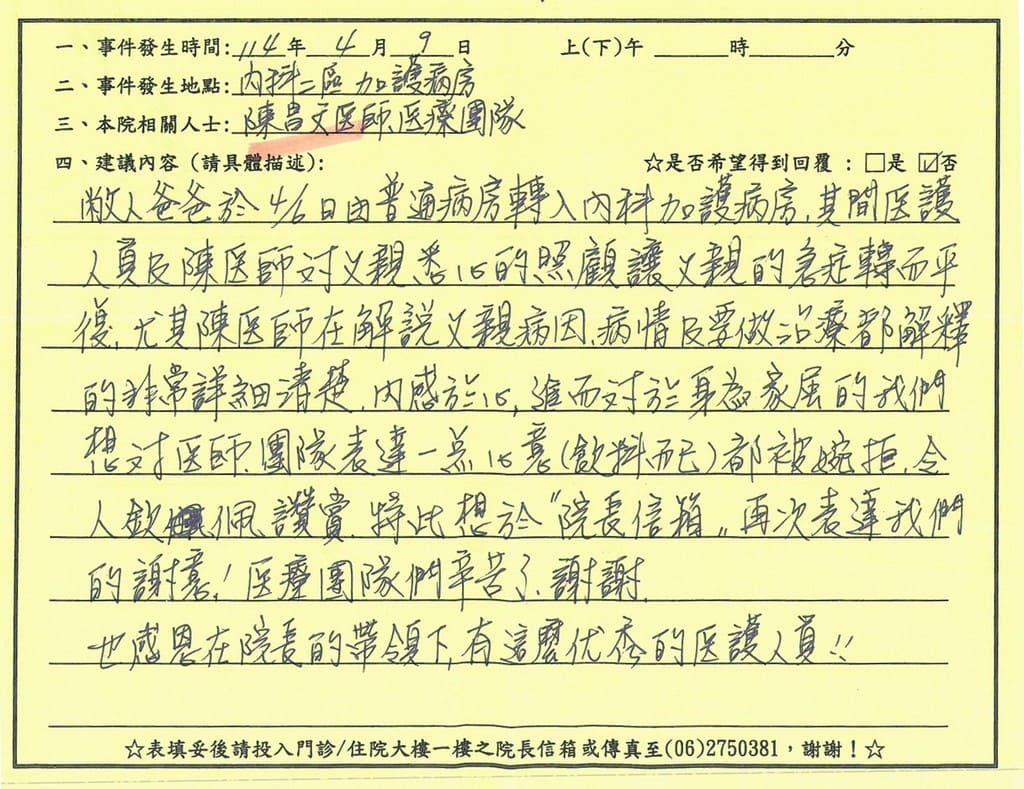 一、事件發生時間: 114 年 4 月 9 日 上(下)午 ______時______分
二、事件發生地點: 內科二區 加護病房
三、本院相關人士: 陳昌文医師.医療團隊
四、建議內容（請具體描述): ☆是否希望得到回覆 : □是 ☑否
敝人爸爸於 4/6日由普通病房轉入內科加護病房,其間医護
人員及陳医師对父親悉心的照顧讓父親的急症轉而平
復,尤其陳医師在解說父親病因.病情及要做治療都解釋
的非常詳細清楚,內感於心,進而对於身為家屬的我們
想对医師.團隊表達一点心意(飲料而已)都被婉拒,令
人欽佩讚賞.特此想於"院長信箱〞再次表達我們
的謝意!医療團隊們辛苦了.謝謝.
也感恩在院長的帶領下,有這麼优秀的医護人員!!
☆表填妥後請投入門診/住院大樓一樓之院長信箱或傳真至(06)2750381，謝謝！☆